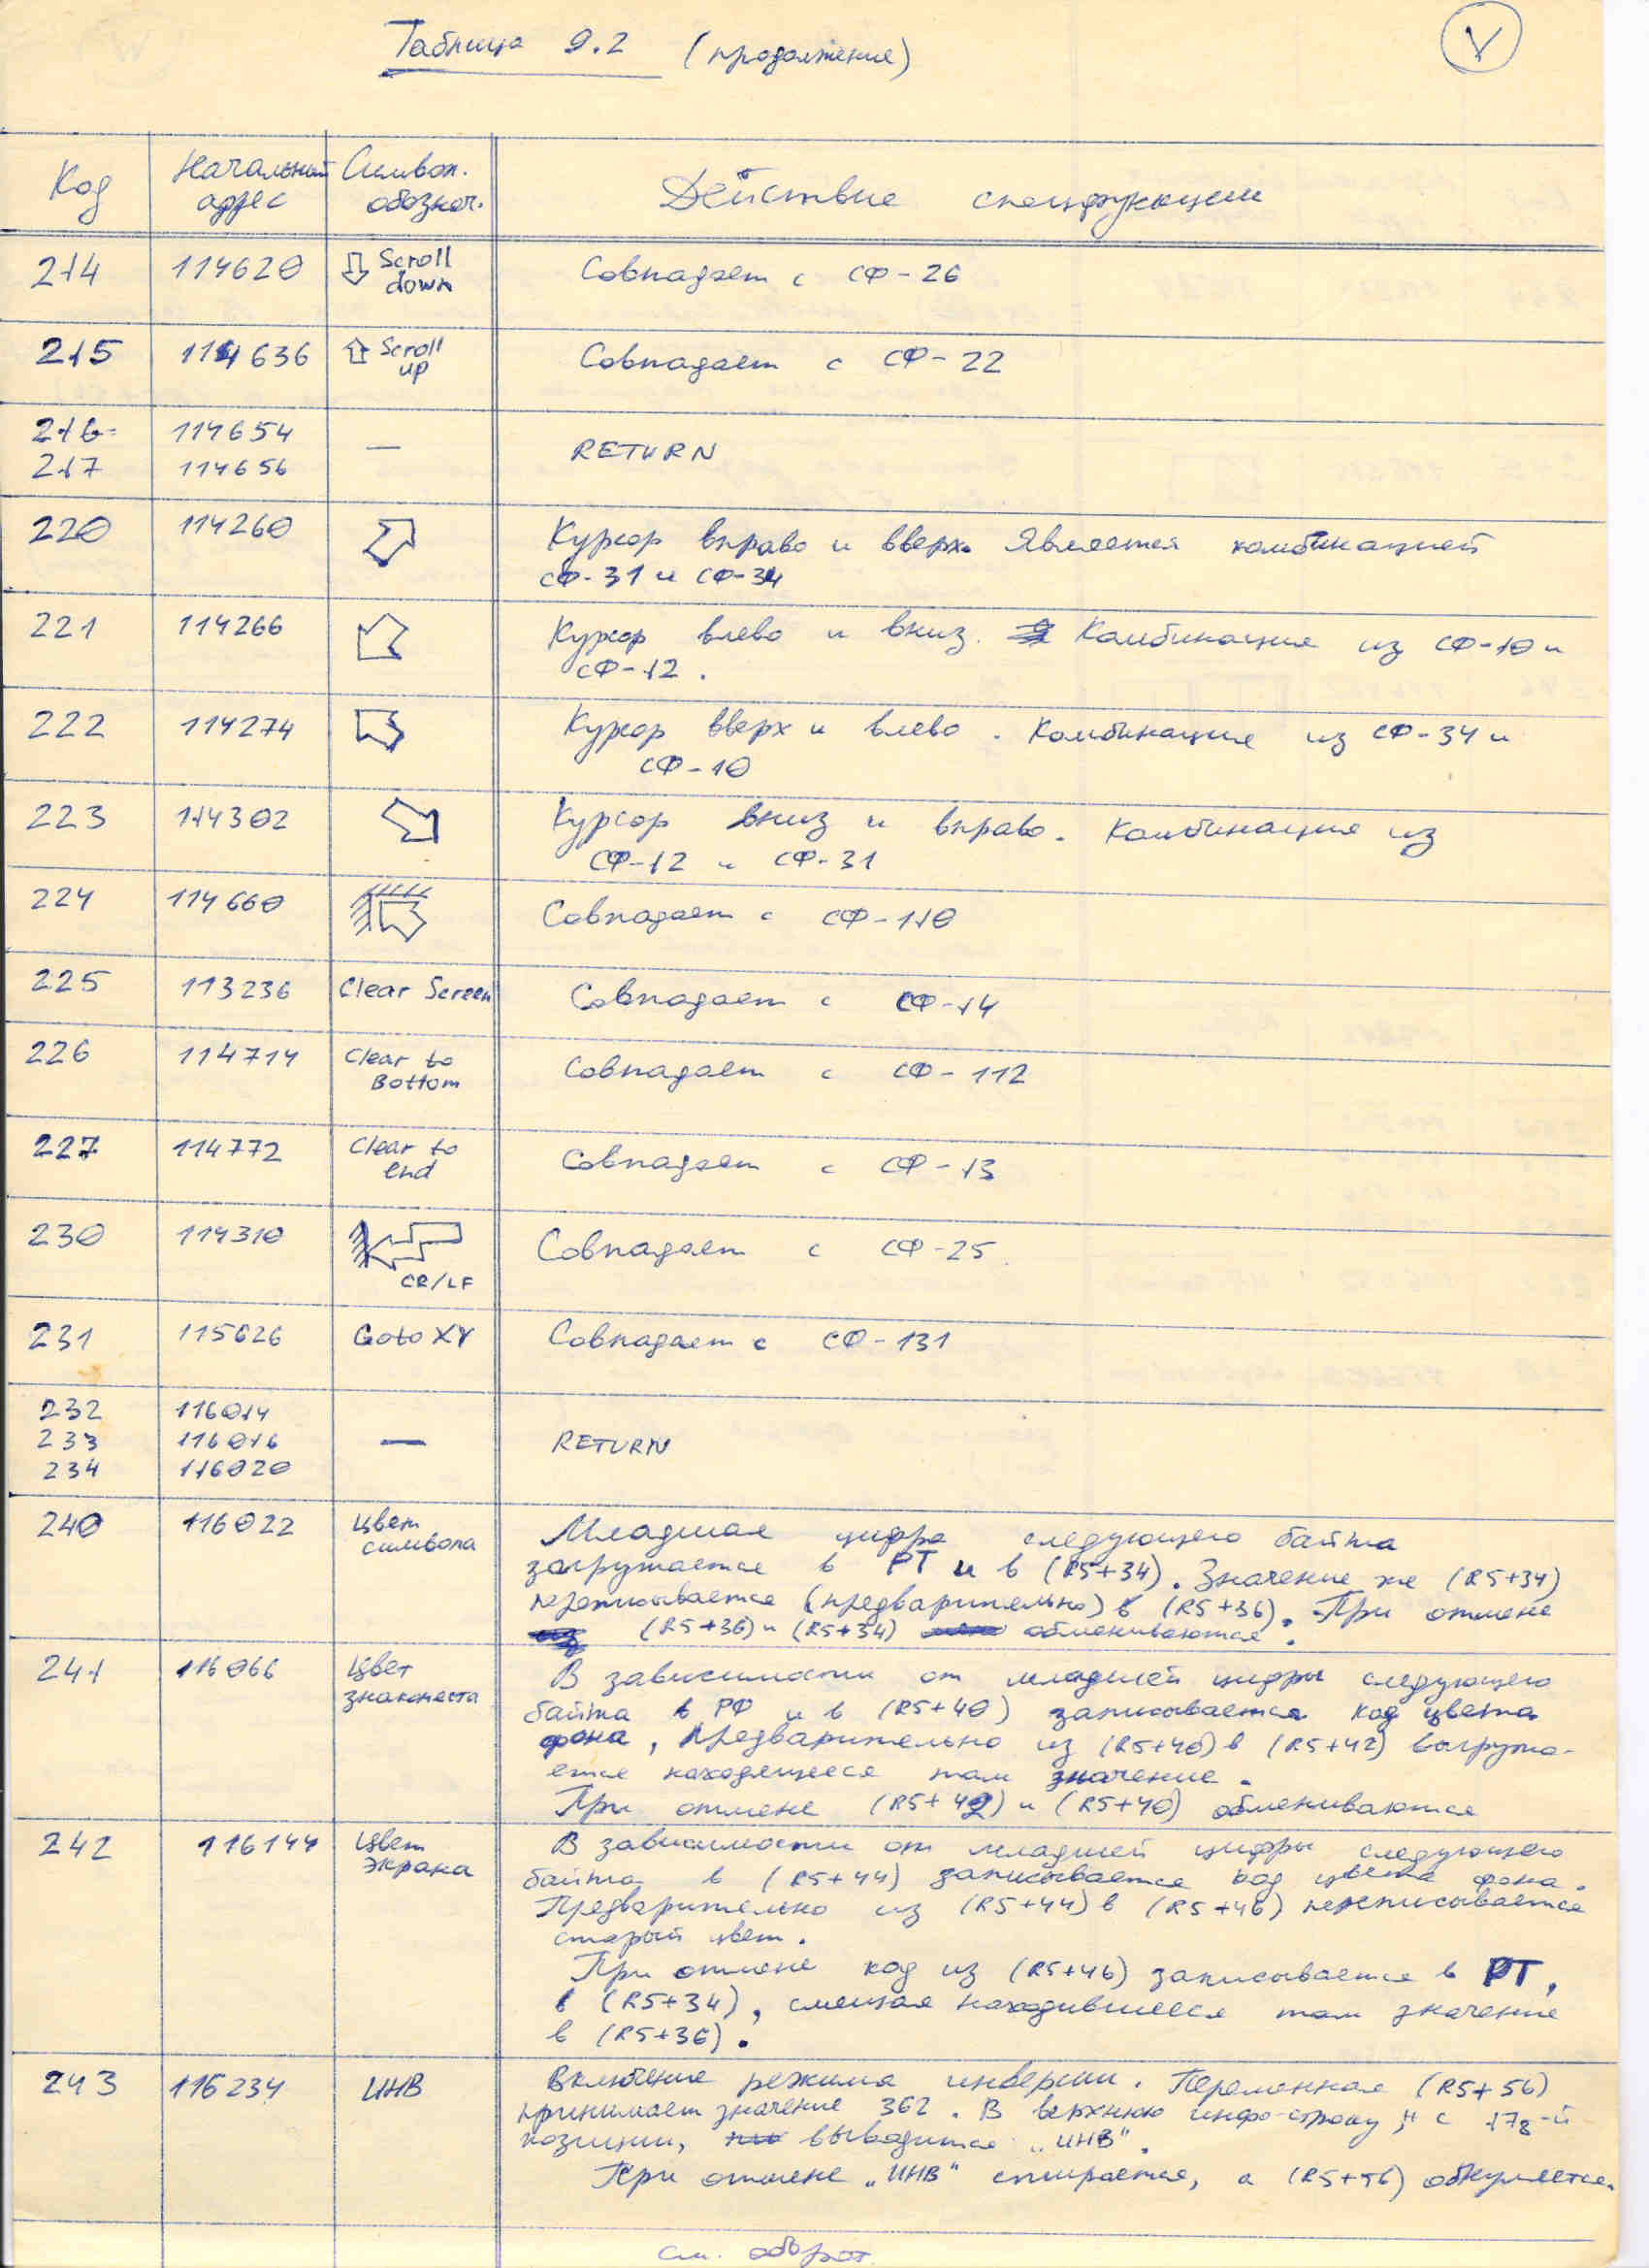 Таблица 9.2 (продолжение)
V
Код
Начальный адрес
Символ. обознач.
Действие спецфункции
214 114620 Scroll down Совпадает с СФ-26
215 114636 Scroll up Совпадает с СФ-22
216 114654
217 114656 — RETURN
220 114260 Курсор вправо и вверх. Является комбинацией
СФ-31 и СФ-34
221 114266 Курсор влево и вниз. Комбинация из СФ-10 и
СФ-12.
222 114274 Курсор вверх и влево. Комбинация из СФ-34 и
СФ-10
223 114302 Курсор вниз и вправо. Комбинация из
СФ-12 и СФ-31
224 114660 Совпадает с СФ-110
225 113236 Clear Screen Совпадает с СФ-14
226 114714 Clear to Bottom Совпадает с СФ-112
227 114772 Clear to end Совпадает с СФ-13
230 114310 CR/LF Совпадает с СФ-25
231 115626 Goto XY Совпадает с СФ-131
232 116014
233 116016 — RETURN
234 116020
240 116022 Цвет символа Младшая цифра следующего байта
загружается в РТ и в (R5+34). Значение же (R5+34)
переписывается (предварительно) в (R5+36). При отмене
(R5+36) и (R5+34) обмениваются.
241 116066 Цвет знакоместа В зависимости от младшей цифры следующего
байта в РФ и в (R5+40) записывается код цвета
фона, предварительно из (R5+40) в (R5+42) выгружа-
ется находящееся там значение.
При отмене (R5+42) и (R5+40) обмениваются
242 116144 Цвет экрана В зависимости от младшей цифры следующего
байта в (R5+44) записывается код цвета фона.
Предварительно из (R5+44) в (R5+46) переписывается
старый цвет.
При отмене код из (R5+46) записывается в РТ,
в (R5+34), смещая находившееся там значение
в (R5+36).
243 116234 ИНВ Включение режима инверсии. Переменная (R5+56)
принимает значение 362. В верхнюю инфо-строку, с 178-й
позиции, выводится „ИНВ".
При отмене „ИНВ" стирается, а (R5+56) обнуляется.
см. оборот